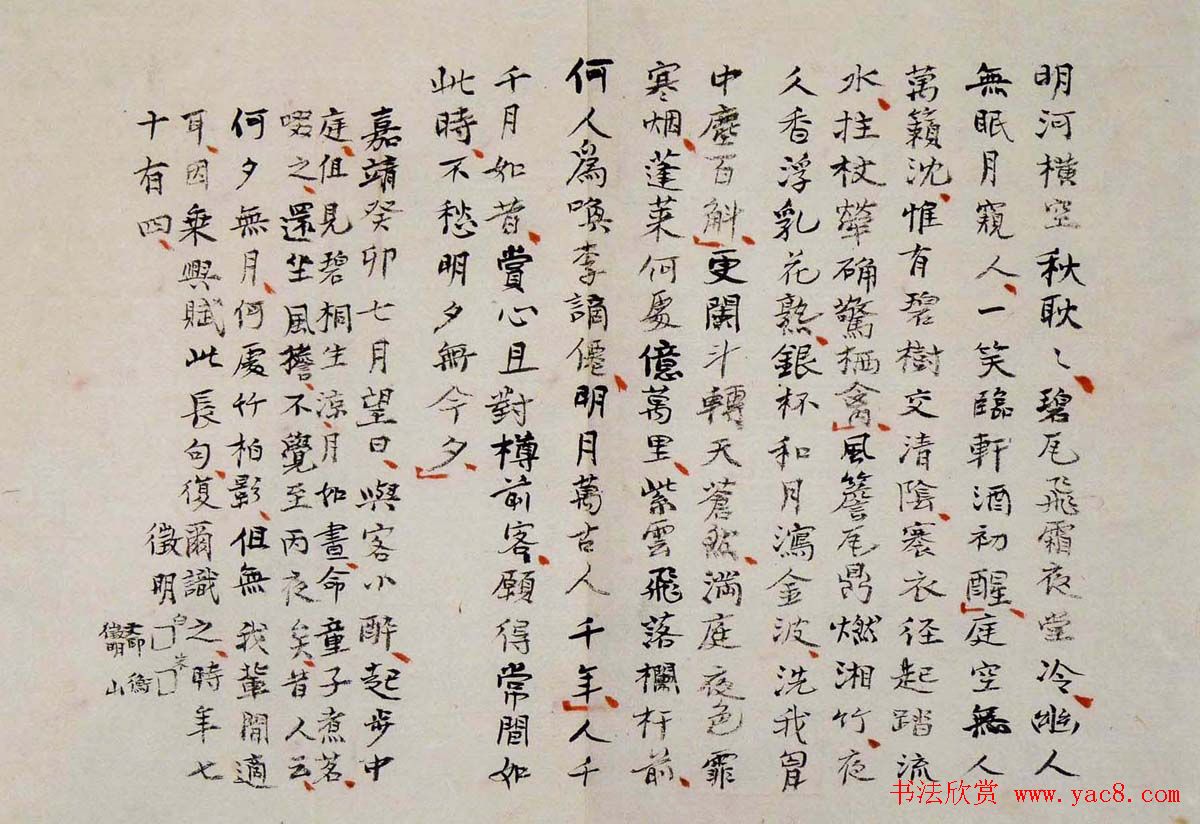 明河橫空秋耿〻碧瓦飛霜夜堂冷、幽人
無眠月窺人、一笑臨軒酒初醒、庭空無人
萬籟沈、惟有碧樹交清陰、褰衣徑起踏流
水、拄杖犖确驚栖禽、風簷瓦鼎燃湘竹、夜
久香浮乳花熟、銀杯和月瀉金波、洗我胷
中塵百斛、更闌斗轉天蒼然、滿庭夜色霏
寒烟、蓬萊何處億萬里、紫雲飛落欄杆前、
何人爲喚李謫僊、明月萬古人千年、人千
千月如昔、賞心且對樽前客、願得常閒如
此時、不愁明夕無今夕、
嘉靖癸卯七月望日、與客小醉、起步中
庭、但見碧桐生涼、月如晝、命童子煮茗、
啜之、還坐風簷、不覺至丙夜矣、昔人云、
何夕無月、何處竹柏影、但無我輩閒適
耳、因乘興賦此長句、復爾識之、時年七
十有四、
徵明
白
朱
文印徵明
衡山
书法欣赏 www.yac8.com